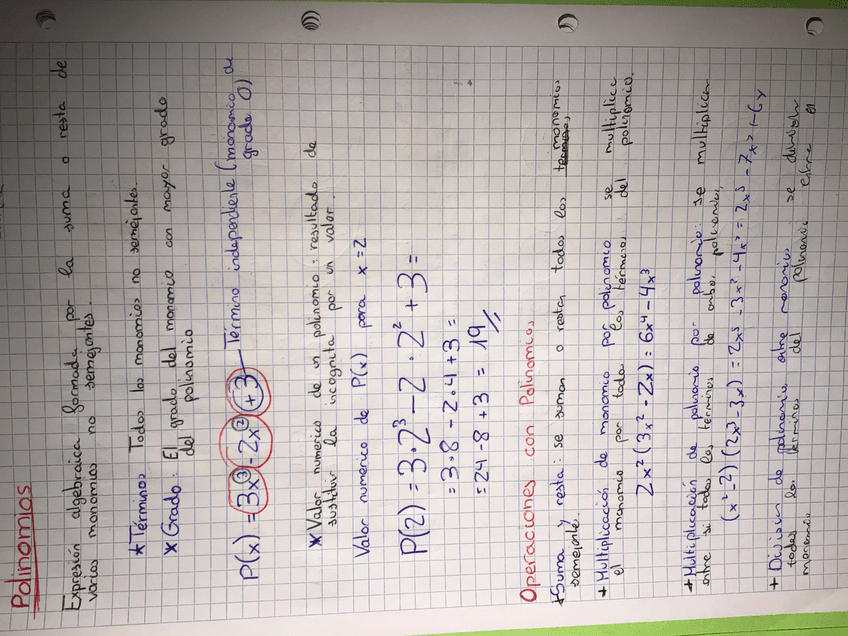 Polinomios
Expresión algebraica formada por la suma o resta de
varios monomios no semejantes.
* Términos Todos los monomios no semejantes.
* Grado: El grado del monomio con mayor grado
del polinomio
P(x) = 3x³ - 2x² + 3 — Término independiente (monomio de
grado 0)
* Valor numerico de un polinomio: resultado de
sustituir la incognita por un valor.
Valor numerico de P(x) para x=2
P(2) = 3·2³ - 2·2² + 3 =
= 3·8 - 2·4 + 3 =
= 24 - 8 + 3 = 19 //
Operaciones con Polinomios
+ Suma y resta: se suman o restan todos los monomios
semejante.
+ Multiplicación de monomio por polinomio se multiplica
el monomio por todos los términos del polinomio.
2x² (3x² - 2x) = 6x⁴ - 4x³
+ Multiplicación de polinomio por polinomio: se multiplican
entre si todos los términos de ambos polinomios,
(x² - 2) (2x³ - 3x) = 2x⁵ - 3x³ - 4x³ = 2x⁵ - 7x³ + 6x
+ Division de polinomio entre monomio se dividen
todos los términos del polinomio entre el
monomio